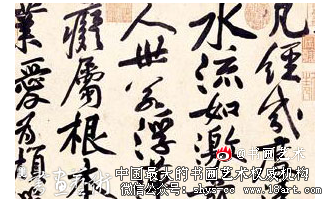 凡經幾度
水流如激
人世若浮
癡屬根本
業愛為煩
@书画艺术
中国最大的书画艺术权威机构
微信公众号:shys-cc www.18art.com